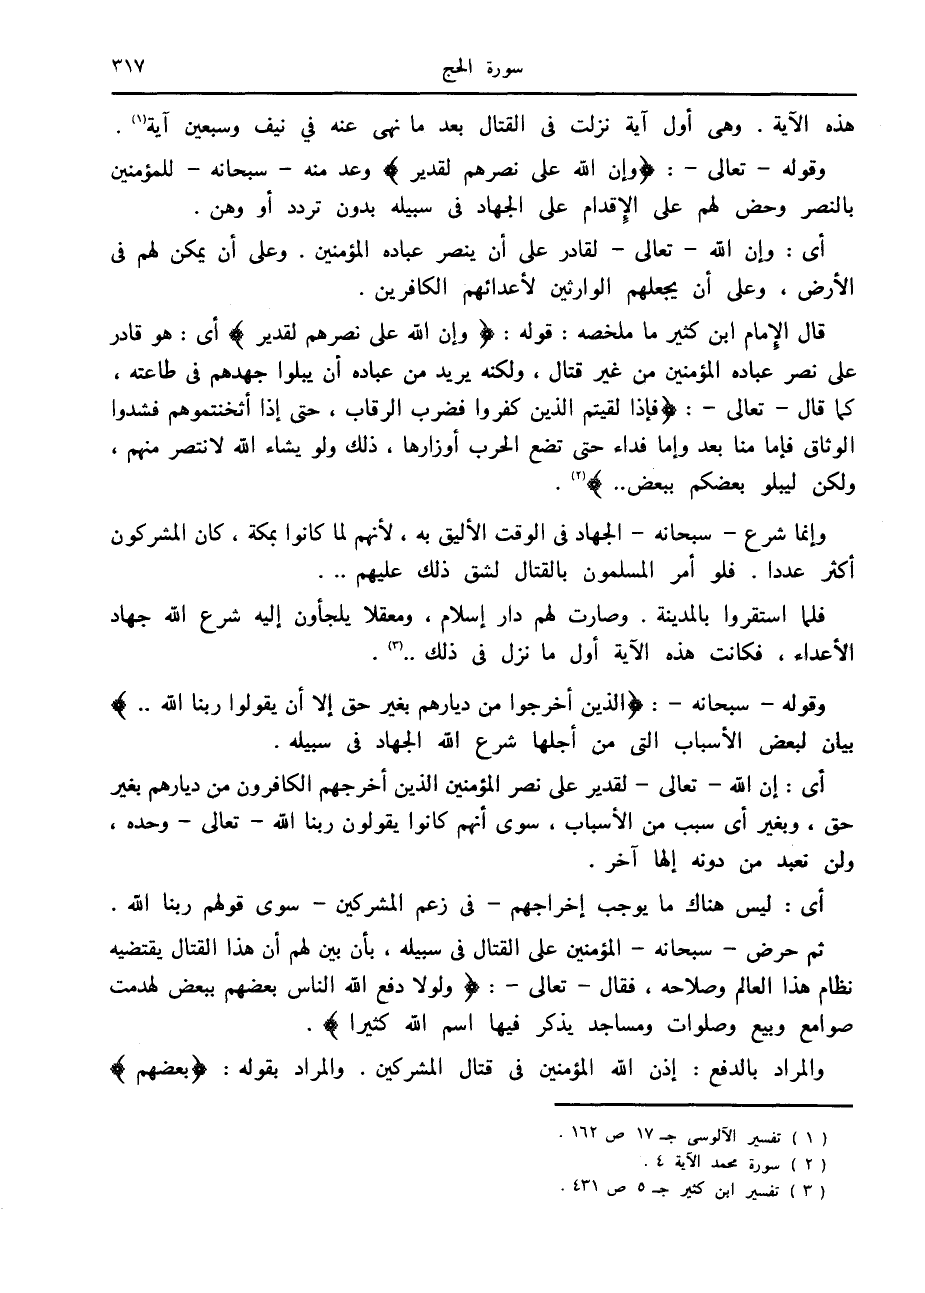 سورة الحج ٣١٧
هذه الآية . وهى أول آية نزلت فى القتال بعد ما نهى عنه في نيف وسبعين آية(١) .
وقوله – تعالى – : ﴿وإن الله على نصرهم لقدير ﴾ وعد منه – سبحانه – للمؤمنين
بالنصر وحض لهم على الإقدام على الجهاد فى سبيله بدون تردد أو وهن .
أى : وإن الله – تعالى – لقادر على أن ينصر عباده المؤمنين . وعلى أن يمكن لهم فى
الأرض ، وعلى أن يجعلهم الوارثين لأعدائهم الكافرين .
قال الإمام ابن كثير ما ملخصه : قوله : ﴿ وإن الله على نصرهم لقدير ﴾ أى : هو قادر
على نصر عباده المؤمنين من غير قتال ، ولكنه يريد من عباده أن يبلوا جهدهم فى طاعته ،
كما قال – تعالى – : ﴿فإذا لقيتم الذين كفروا فضرب الرقاب ، حتى إذا أثخنتموهم فشدوا
الوثاق فإما منا بعد وإما فداء حتى تضع الحرب أوزارها ، ذلك ولو يشاء الله لانتصر منهم ،
ولكن ليبلو بعضكم ببعض.. ﴾(٢) .
وإنما شرع – سبحانه – الجهاد فى الوقت الأليق به ، لأنهم لما كانوا بمكة ، كان المشركون
أكثر عددا . فلو أمر المسلمون بالقتال لشق ذلك عليهم .. .
فلما استقروا بالمدينة . وصارت لهم دار إسلام ، ومعقلا يلجأون إليه شرع الله جهاد
الأعداء ، فكانت هذه الآية أول ما نزل فى ذلك ..(٣) .
وقوله – سبحانه – : ﴿الذين أخرجوا من ديارهم بغير حق إلا أن يقولوا ربنا الله .. ﴾
بيان لبعض الأسباب التى من أجلها شرع الله الجهاد فى سبيله .
أى : إن الله – تعالى – لقدير على نصر المؤمنين الذين أخرجهم الكافرون من ديارهم بغير
حق ، وبغير أى سبب من الأسباب ، سوى أنهم كانوا يقولون ربنا الله – تعالى – وحده ،
ولن نعبد من دونه إلها آخر .
أى : ليس هناك ما يوجب إخراجهم – فى زعم المشركين – سوى قولهم ربنا الله .
ثم حرض – سبحانه – المؤمنين على القتال فى سبيله ، بأن بين لهم أن هذا القتال يقتضيه
نظام هذا العالم وصلاحه ، فقال – تعالى – : ﴿ ولولا دفع الله الناس بعضهم ببعض لهدمت
صوامع وبيع وصلوات ومساجد يذكر فيها اسم الله كثيرا ﴾ .
والمراد بالدفع : إذن الله المؤمنين فى قتال المشركين . والمراد بقوله : ﴿بعضهم ﴾
( ١ ) تفسير الآلوسى جـ ١٧ ص ١٦٢ .
( ٢ ) سورة محمد الآية ٤ .
( ٣ ) تفسير ابن كثير جـ ٥ ص ٤٣١ .